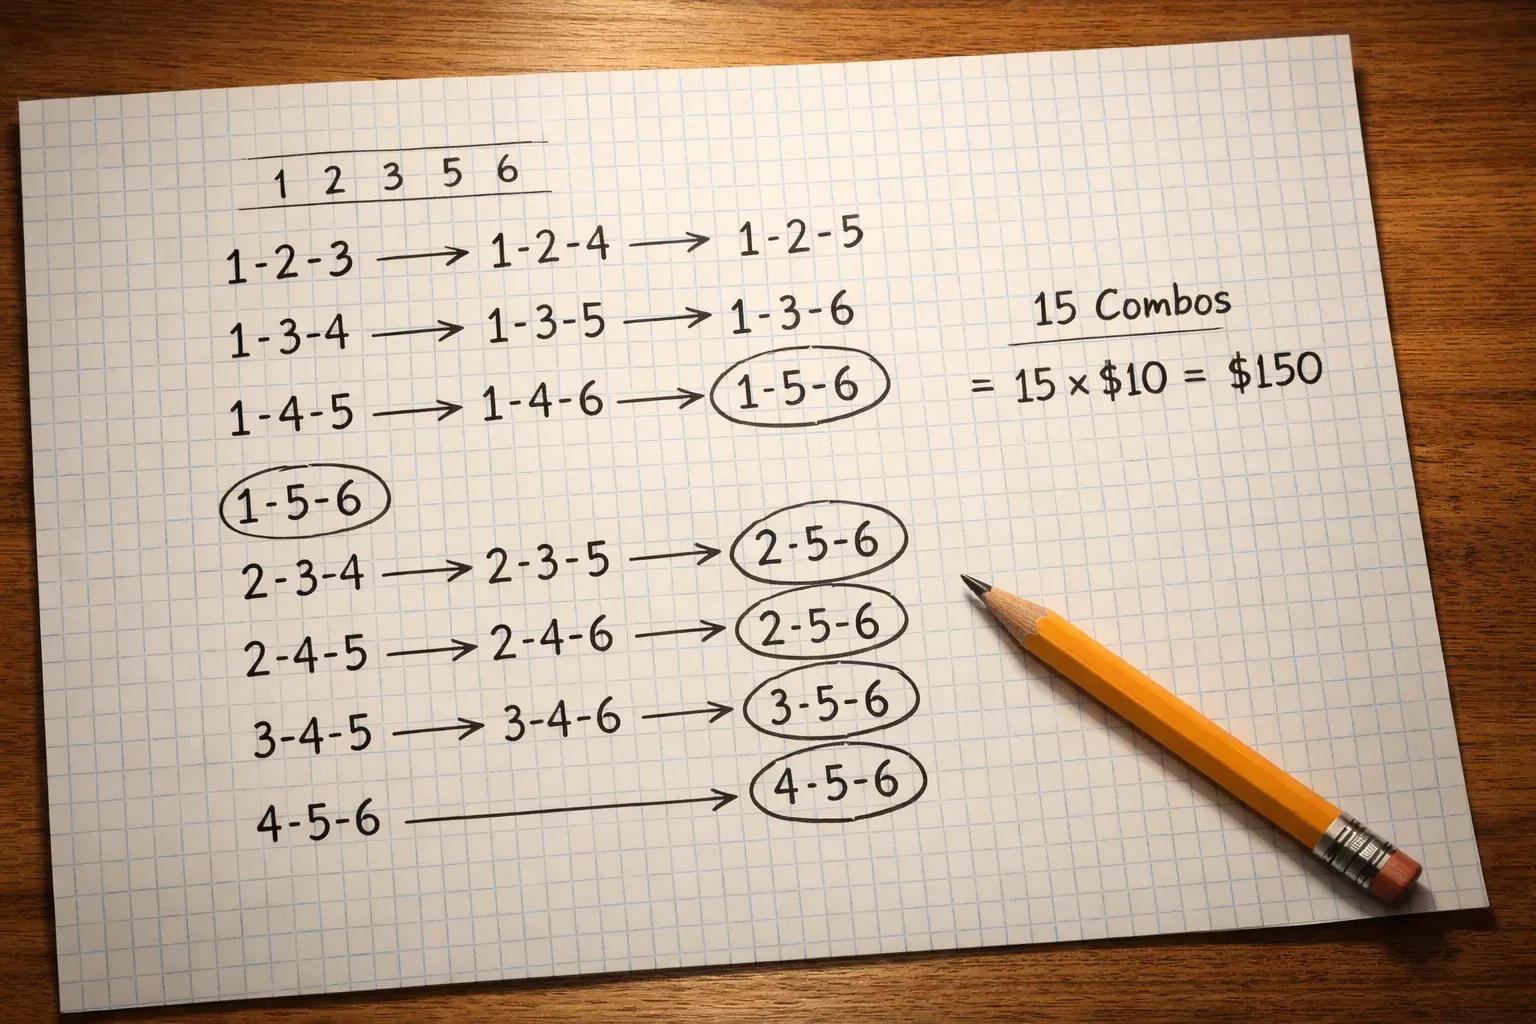 1 2 3 5 6
1-2-3 → 1-2-4 → 1-2-5
1-3-4 → 1-3-5 → 1-3-6
1-4-5 → 1-4-6 → 1-5-6
15 Combos
= 15 × $10 = $150
1-5-6
2-3-4 → 2-3-5 → 2-5-6
2-4-5 → 2-4-6 → 2-5-6
3-4-5 → 3-4-6 → 3-5-6
4-5-6 → 4-5-6